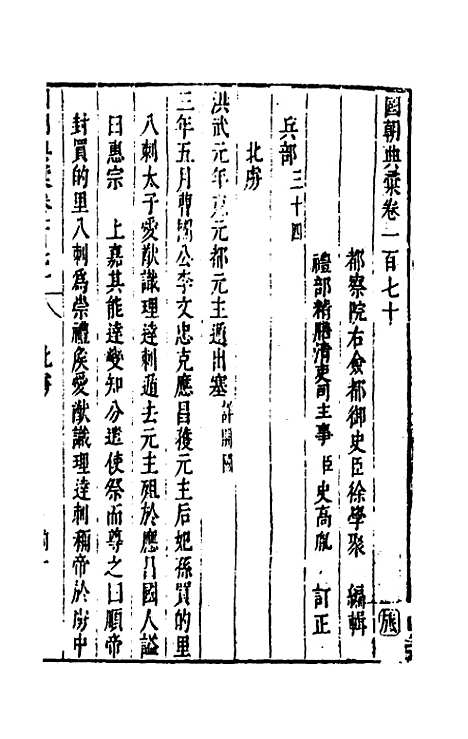 國朝典彙卷一百七十
都察院右僉都御史臣徐學聚 編輯
禮部精膳清吏司主事臣史高胤 訂正
兵部三十四
北虜
洪武元年克元都元主遁出塞詳開國
三年五月曹國公李文忠克應昌獲元主后妃孫買的里
八剌太子愛猷識理達剌遁去元主殂於應昌國人謚
曰惠宗 上嘉其能達變知分遣使祭而尊之曰順帝
封買的里八剌爲崇禮侯愛猷識理達剌稱帝於虜中
北虜